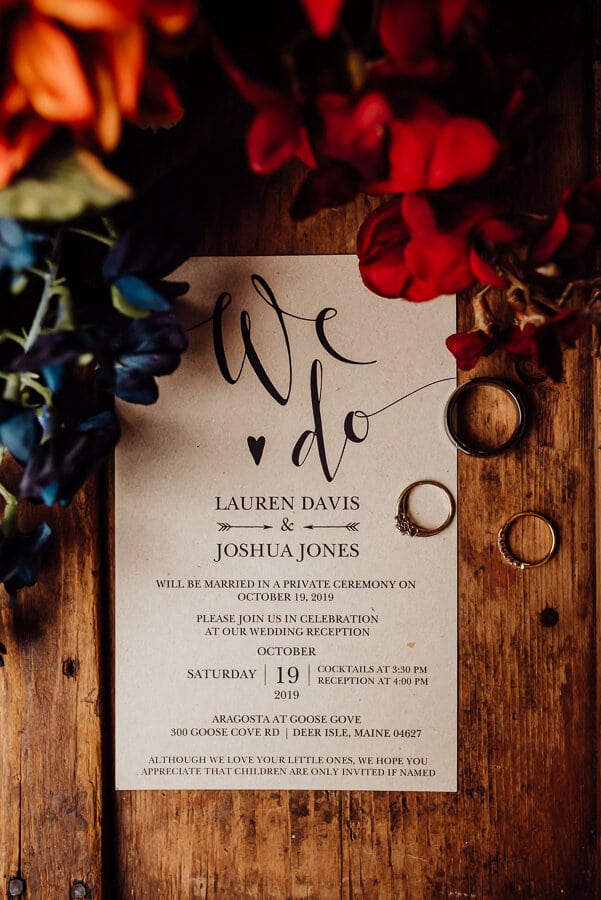 We
do
LAUREN DAVIS
&
JOSHUA JONES
WILL BE MARRIED IN A PRIVATE CEREMONY ON
OCTOBER 19, 2019
PLEASE JOIN US IN CELEBRATION
AT OUR WEDDING RECEPTION
OCTOBER
SATURDAY | 19 | COCKTAILS AT 3:30 PM
RECEPTION AT 4:00 PM
2019
ARAGOSTA AT GOOSE GOVE
300 GOOSE COVE RD | DEER ISLE, MAINE 04627
ALTHOUGH WE LOVE YOUR LITTLE ONES, WE HOPE YOU
APPRECIATE THAT CHILDREN ARE ONLY INVITED IF NAMED